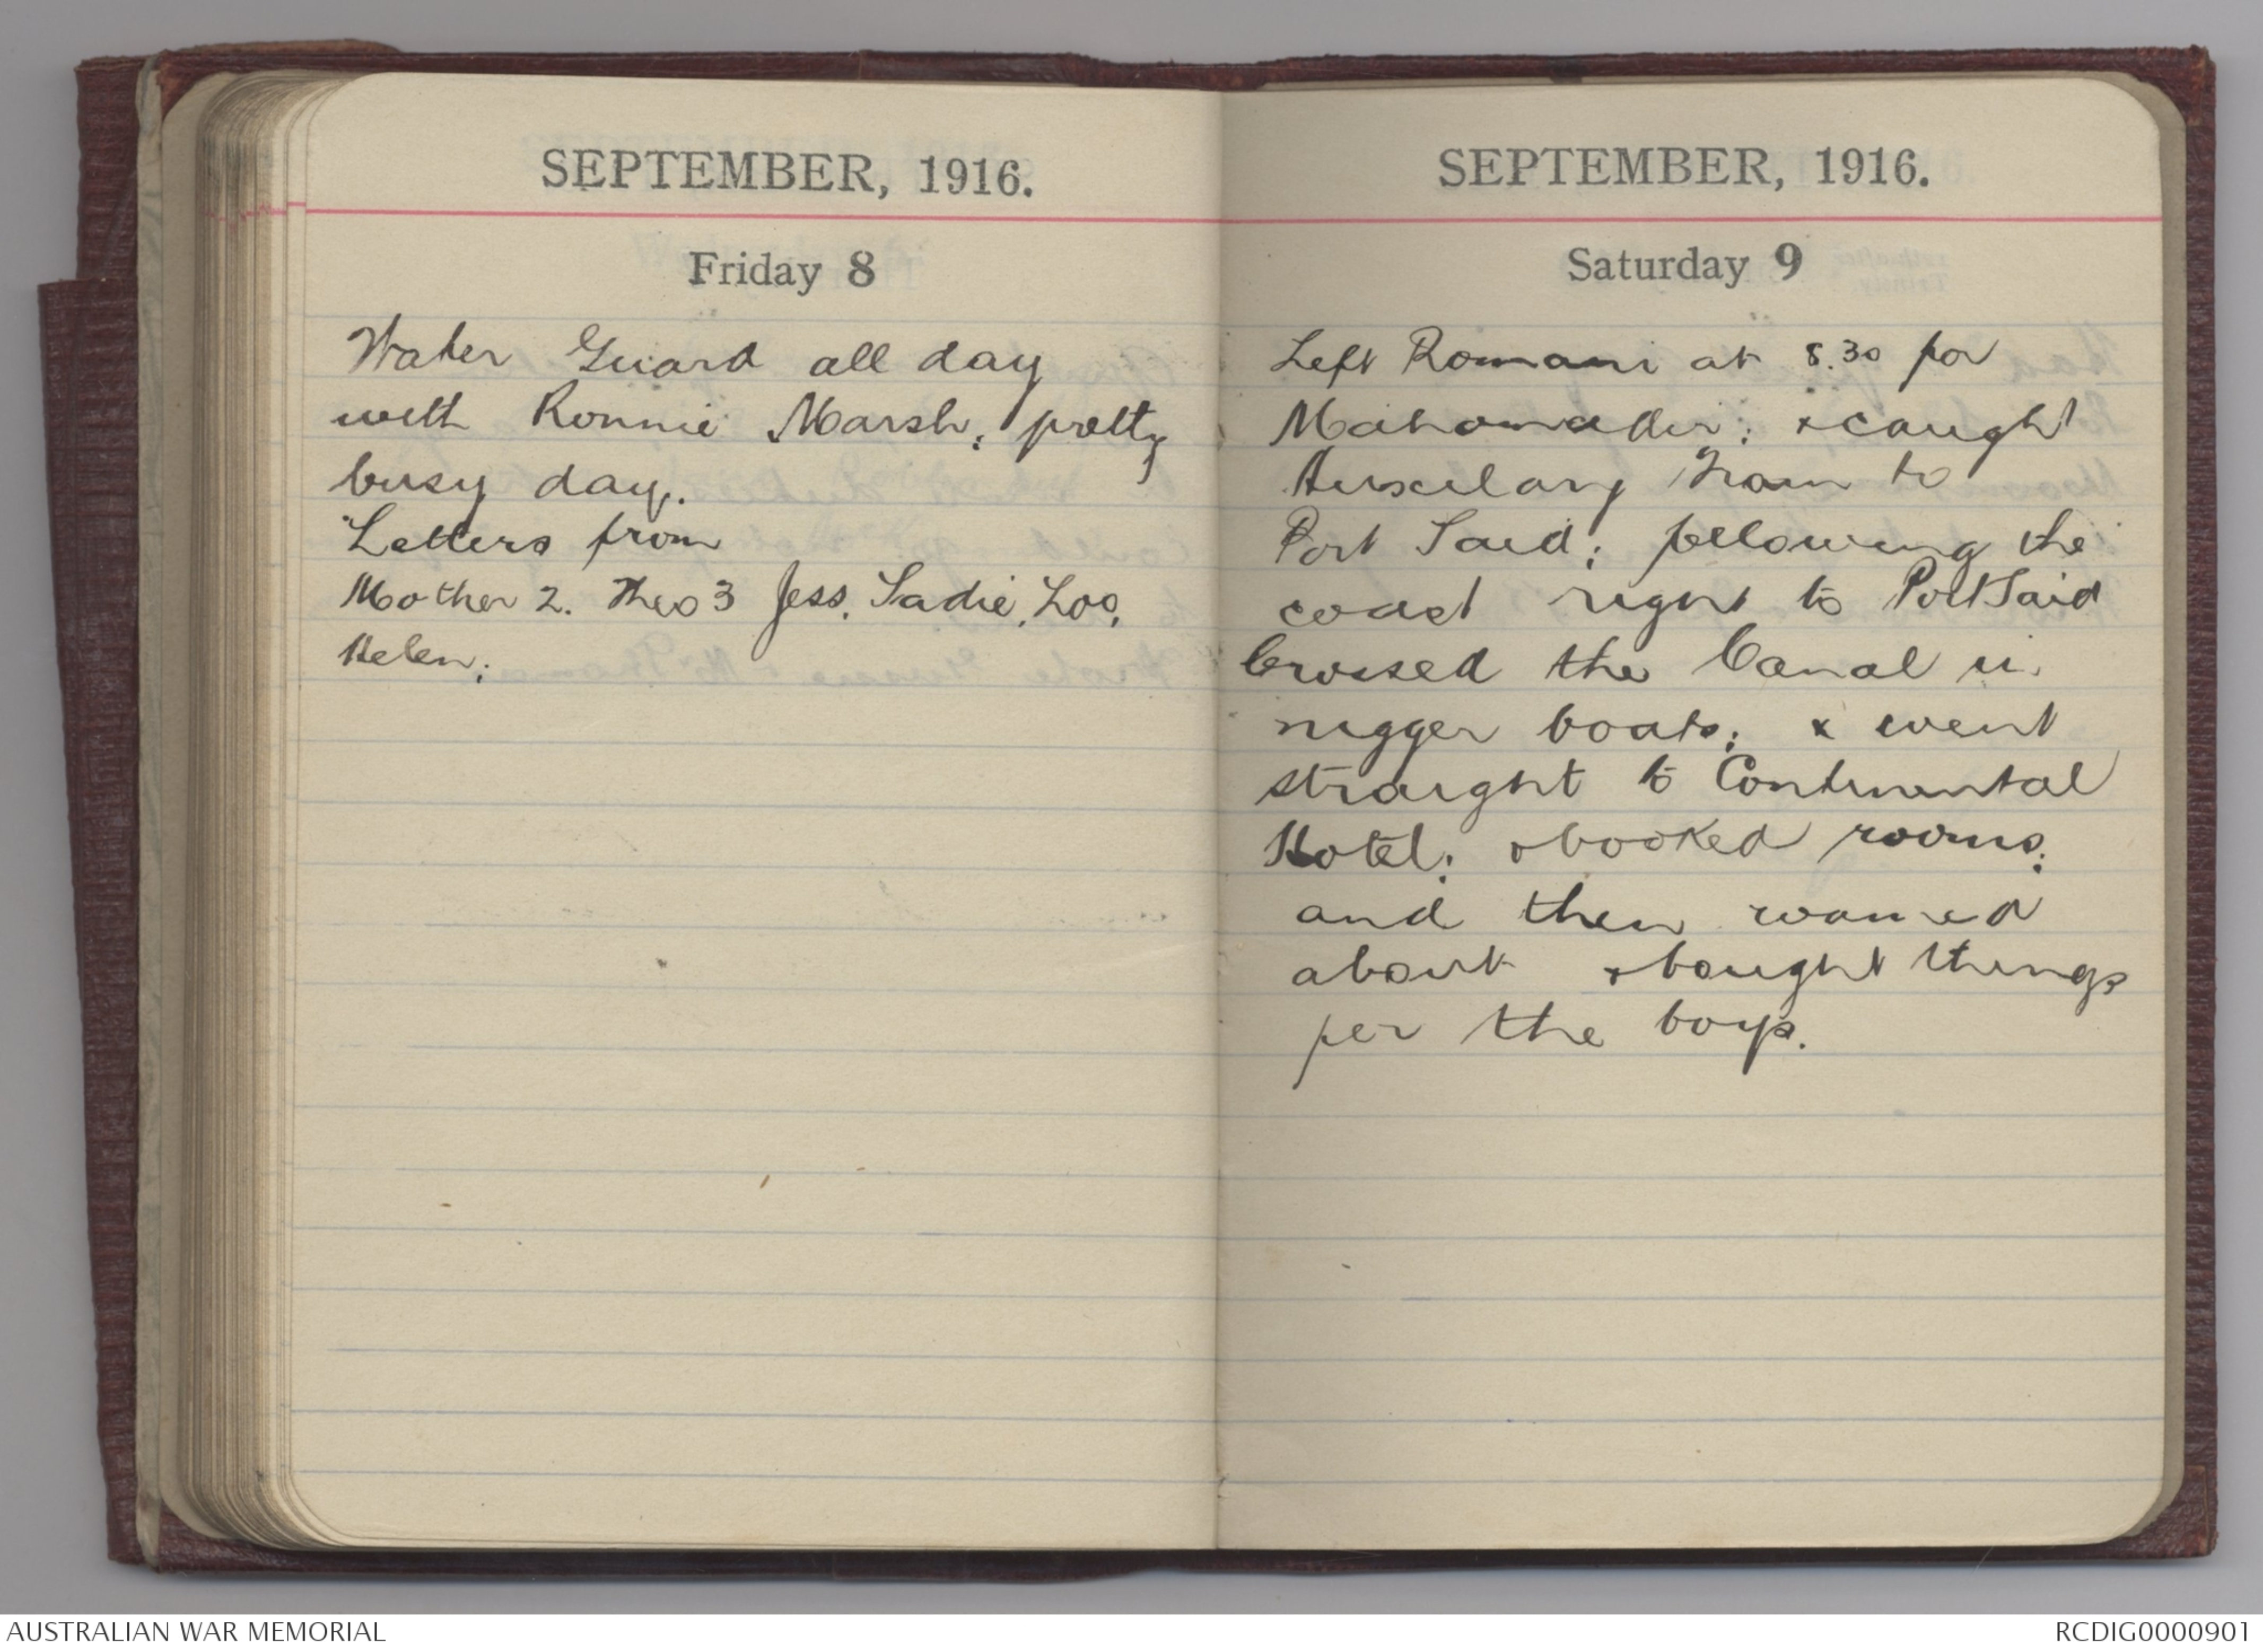 SEPTEMBER, 1916.
Friday 8
Water Guard all day
with Ronnie Marsh; pretty
busy day.
Letters from
Mother 2. Theo 3 Jess, Sadie, Loo,
Helen;
SEPTEMBER, 1916.
Saturday 9
Left Romani at 8.30 for
Mahomadir; & caught
Auxilary Train to
Port Said; following the
coast right to Port Said
Crossed the Canal in
nigger boats; & went
straight to Continental
Hotel; & booked rooms;
and then roamed
about & bought things
for the boys.
AUSTRALIAN WAR MEMORIAL
RCDIG0000901